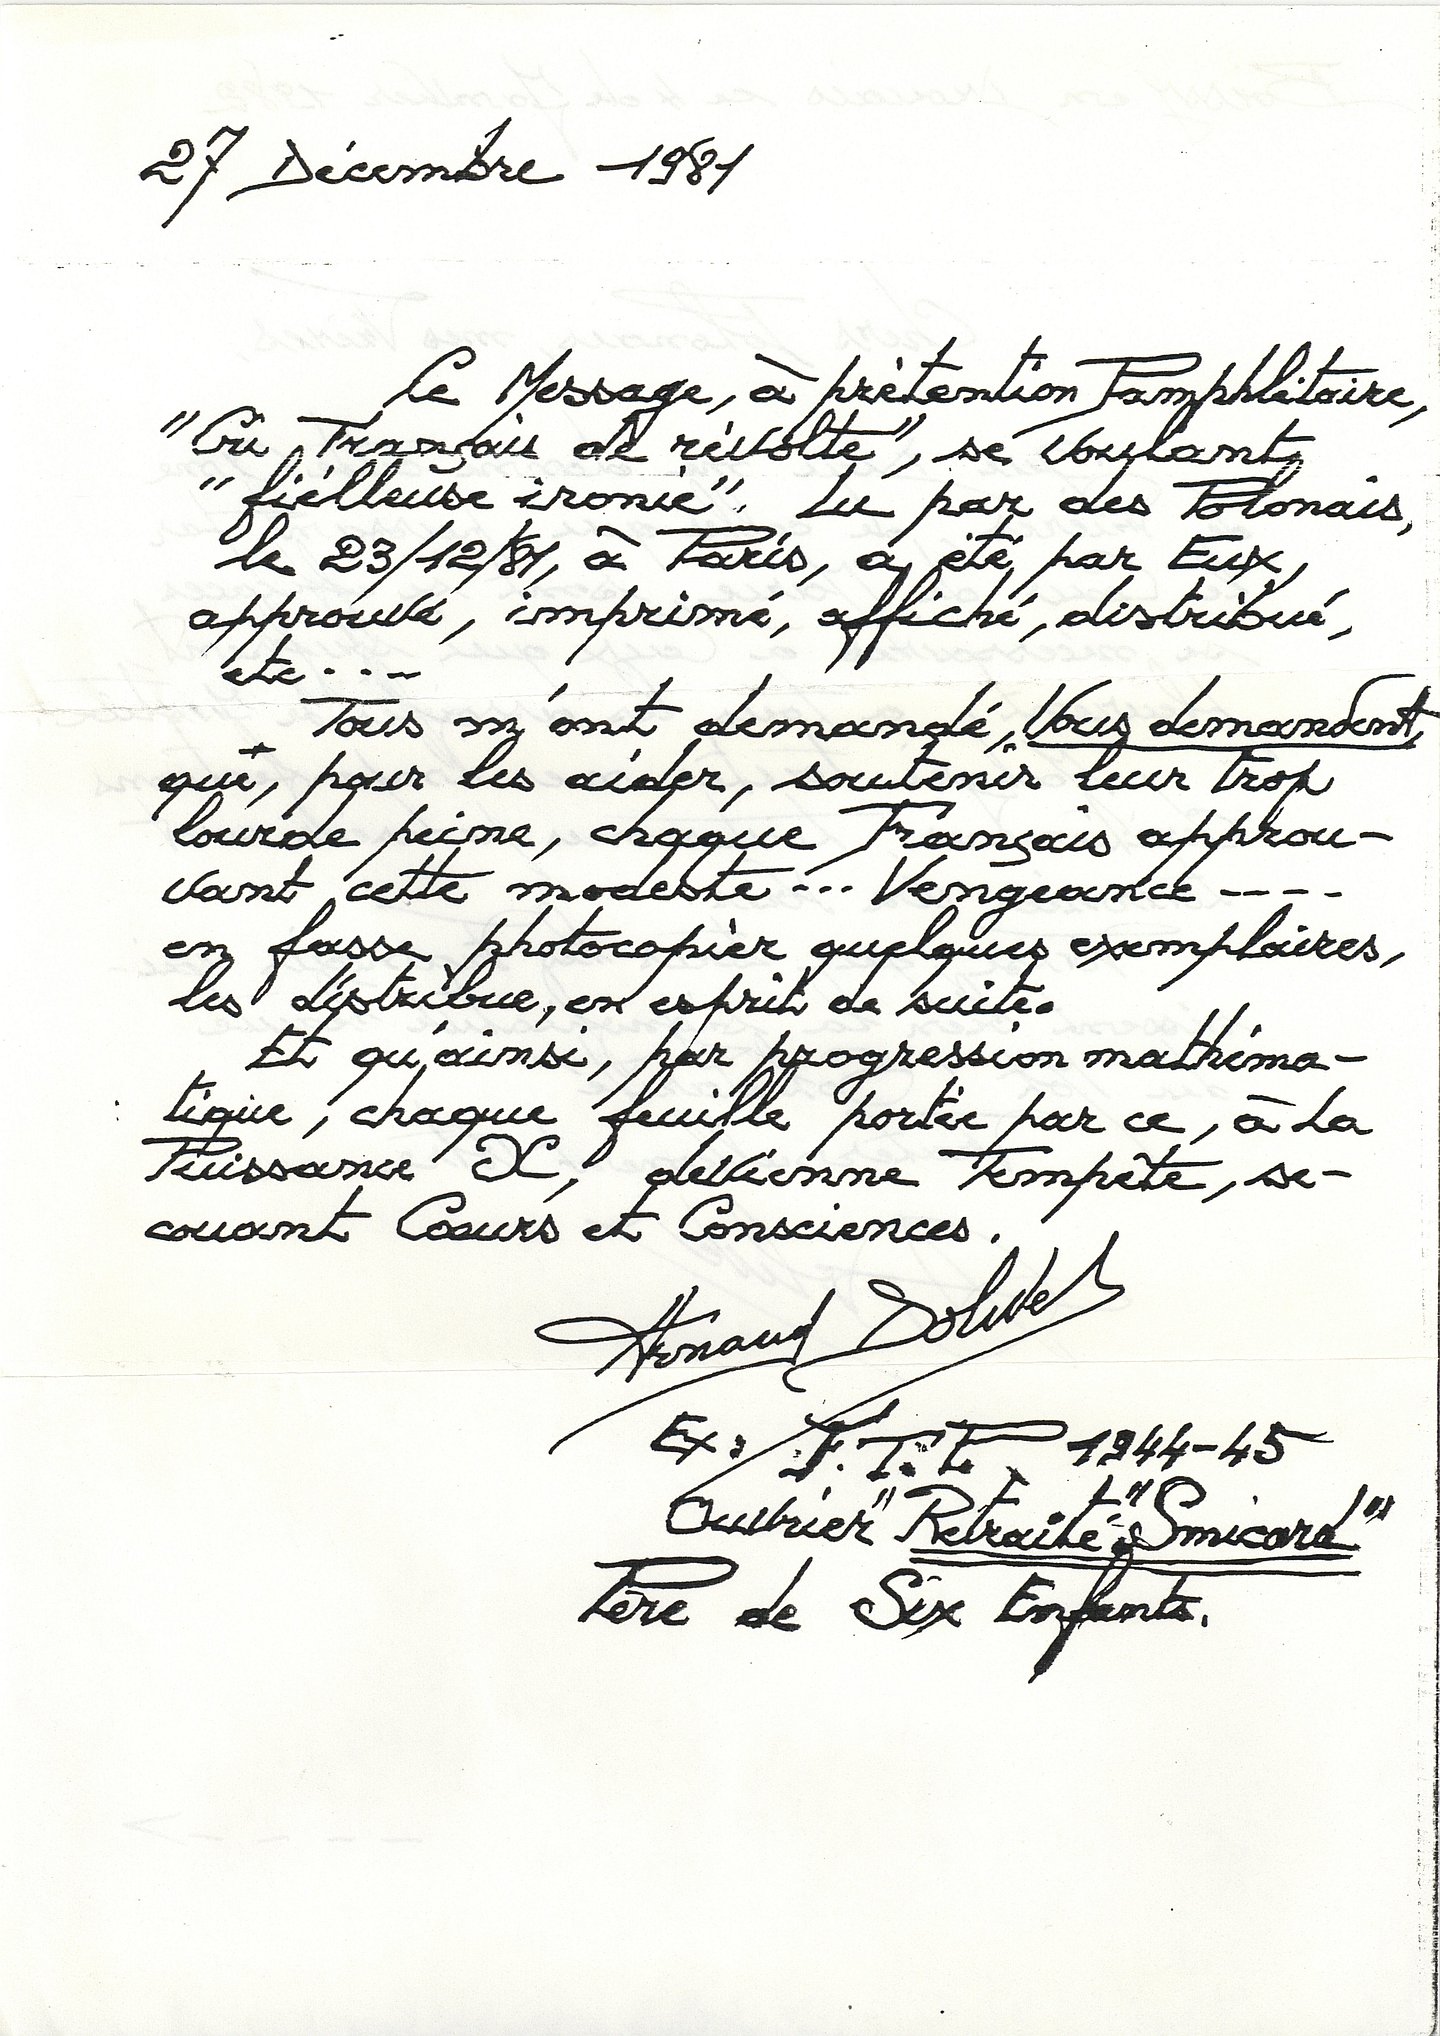 27 Décembre 1981
Ce Message, à prétention Pamphlétaire,
"Cri Français de révolte", se voulant
"fiélleuse ironie". Lu par des Polonais,
le 23/12/81, à Paris, a été, par Eux,
approuvé, imprimé, affiché, distribué,
etc...-
Tous m'ont demandé, Vous demandent,
que, pour les aider, soutenir leur trop
lourde peine, chaque Français approu-
vant cette modeste... Vengeance ----
en fasse photocopier quelques exemplaires,
les distribue, en esprit de suite.
Et qu'ainsi, par progression mathéma-
tique, chaque feuille portée par ce, à la
Puissance X, devienne Tempête, se-
couant Cœurs et Consciences.
Arnaud
Ex: F.T.P. 1944-45
Ouvrier "Retraité" "Smicard"
Père de Six Enfants.